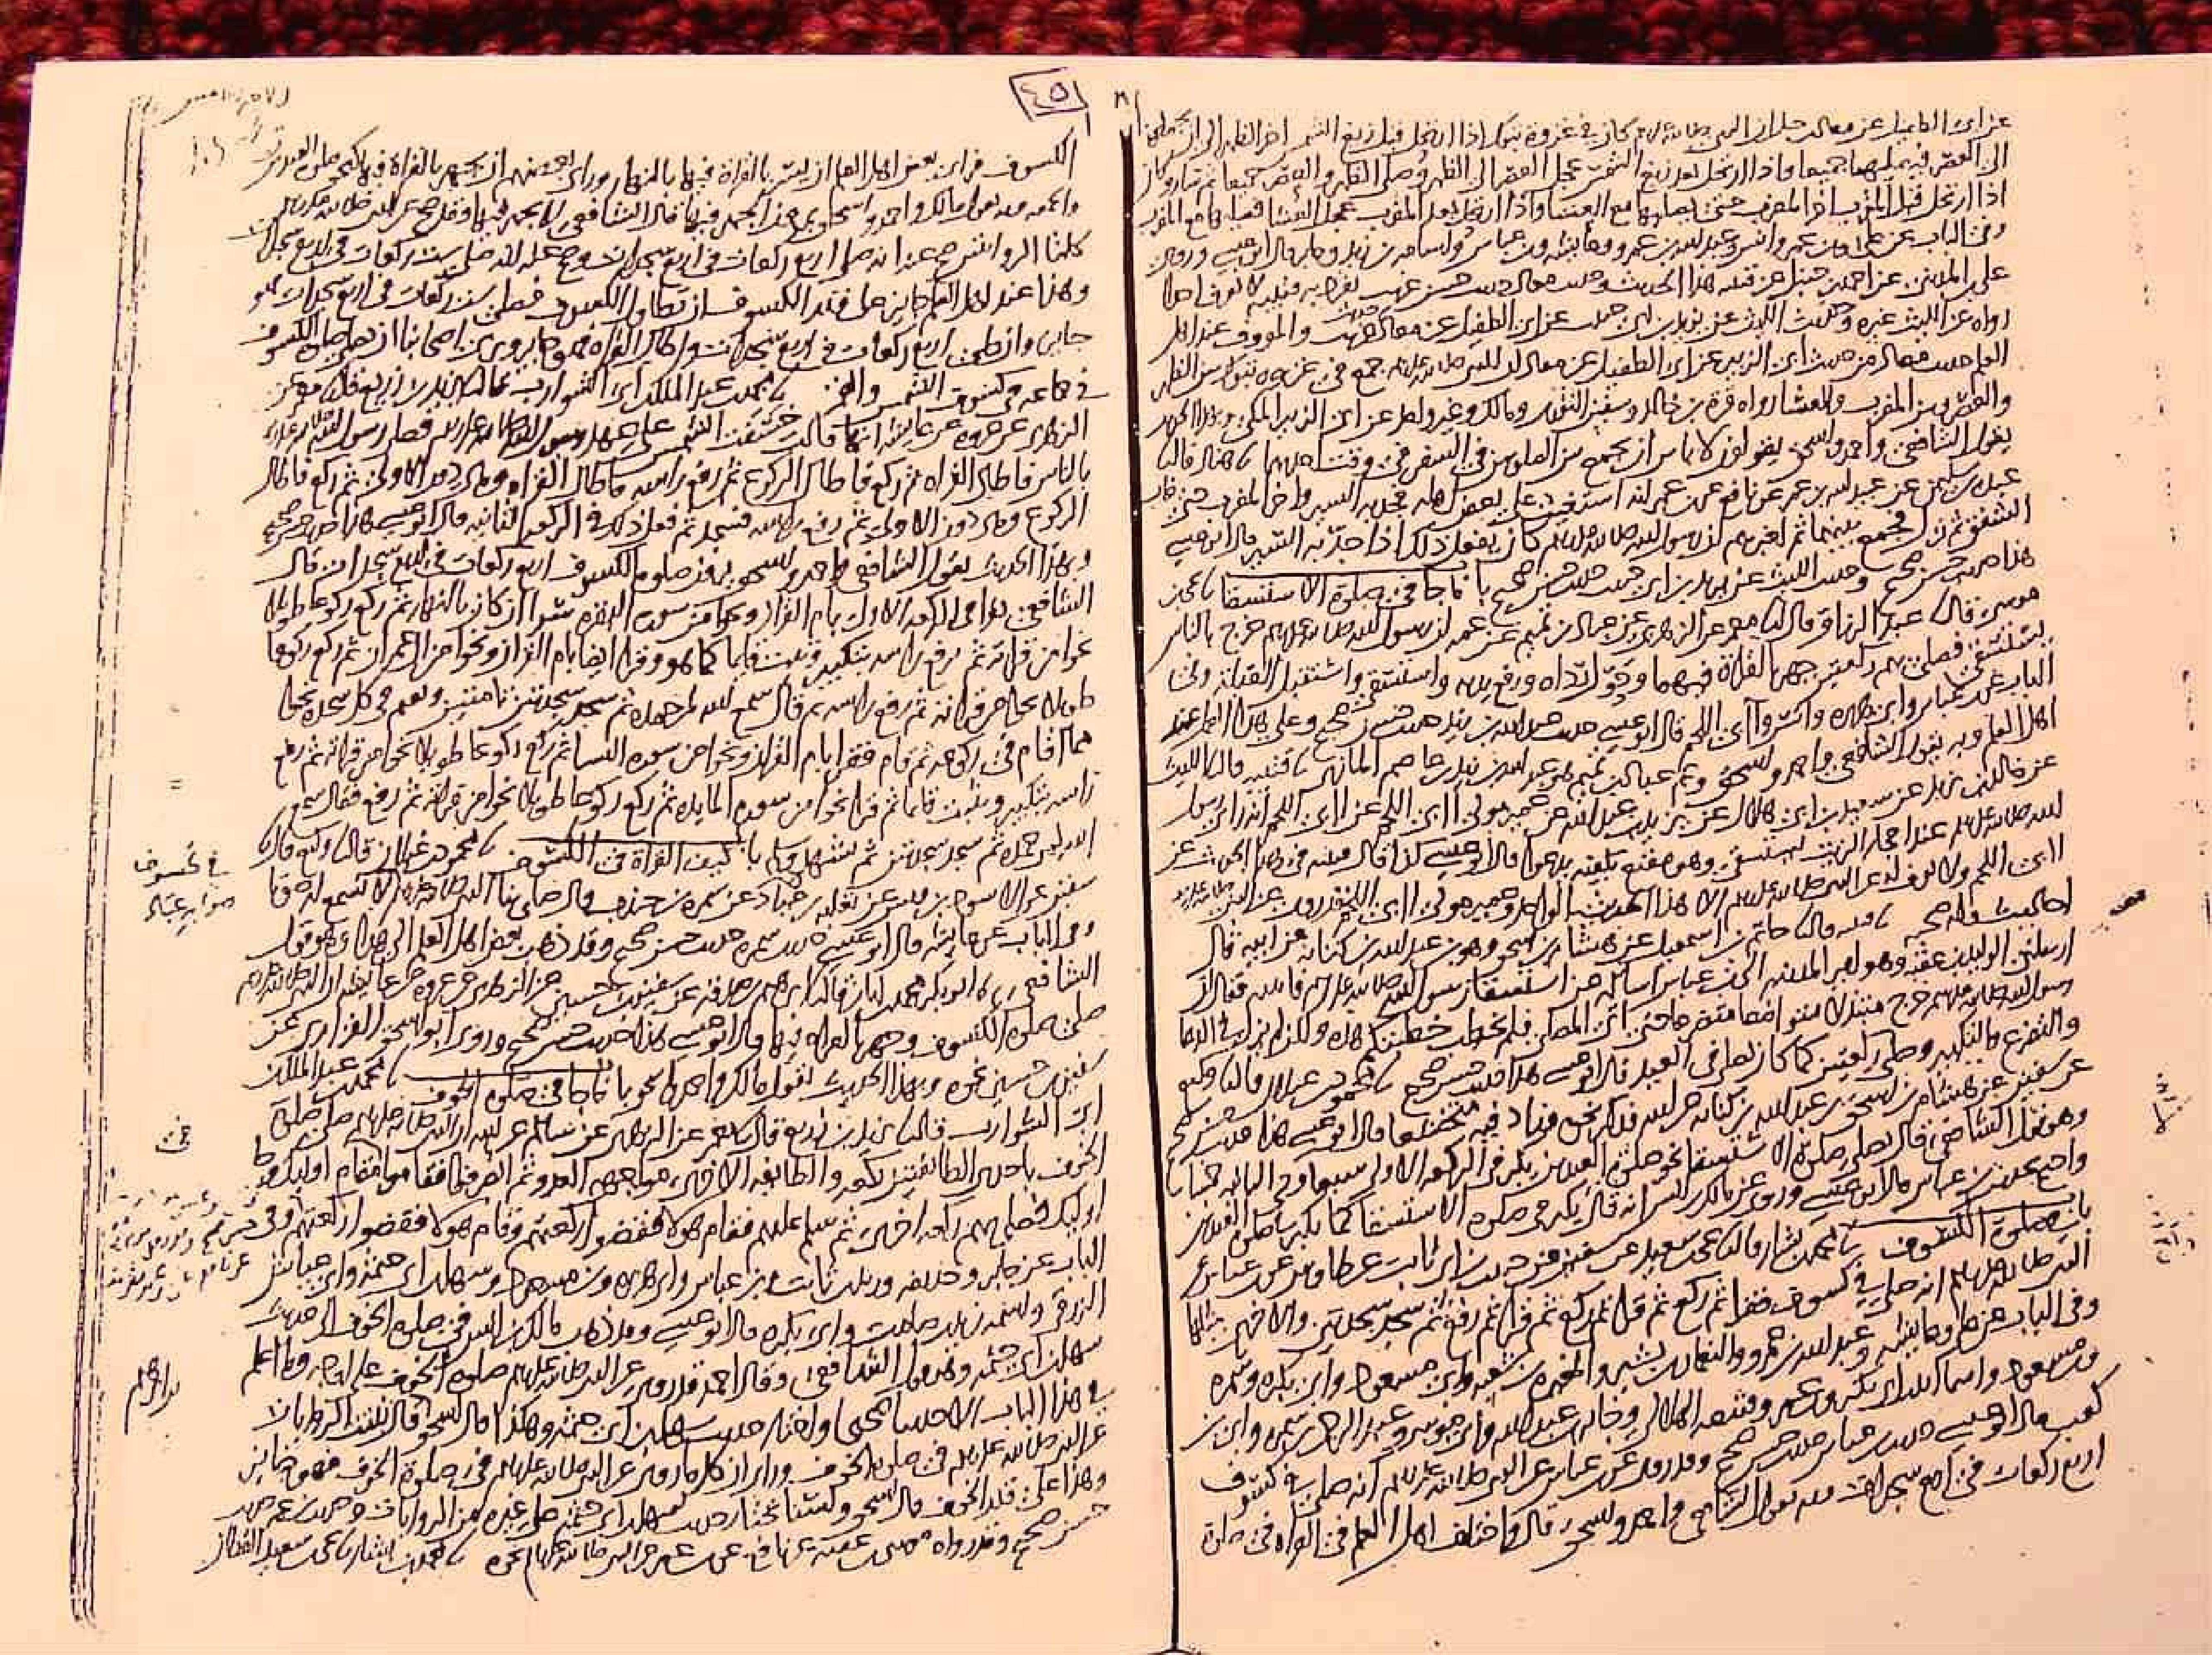 عن ابي الطفيل عن معاذ بن جبل ان النبي صلى الله عليه وسلم كان في غزوة تبوك اذا ارتحل قبل زيغ الشمس اخر الظهر الى ان يجمعها
الى العصر فيصليهما جميعا واذا ارتحل بعد زيغ الشمس عجل العصر الى الظهر وصلى الظهر والعصر جميعا ثم سار وكان
اذا ارتحل قبل المغرب اخر المغرب حتى يصليها مع العشا واذا ارتحل بعد المغرب عجل العشا فصلاها مع المغرب
وفي الباب عن علي وابن عمر وانس وعبد الله بن عمرو وعايشه وابن عباس واسامه بن زيد وجابر قال ابو عيسى وروى
علي بن المديني عن احمد بن حنبل عن قتيبه هذا الحديث وحديث معاذ حديث حسن غريب تفرد به قتيبه لا نعرف احدا
رواه عن الليث غيره وحديث الليث عن يزيد بن ابي حبيب عن ابي الطفيل عن معاذ حديث غريب والمعروف عند اهل
العلم حديث معاذ من حديث ابي الزبير عن ابي الطفيل عن معاذ ان النبي صلى الله عليه وسلم جمع في غزوه تبوك بين الظهر
والعصر وبين المغرب والعشا رواه قرة بن خالد وسفين الثوري ومالك وغير واحد عن ابي الزبير المكي وبهذا الحديث
يقول الشافعي واحمد واسحق يقولون لا باس ان يجمع بين الصلوتين في السفر في وقت احديهما نا هناد قال نا
عبده بن سليمن عن عبيد الله بن عمر عن نافع عن ابن عمر انه استغيث على بعض اهله فجد به السير واخر المغرب حتى غاب
الشفق ثم نزل فجمع بينهما ثم اخبرهم ان رسول الله صلى الله عليه وسلم كان يفعل ذلك اذا جد به السير قال ابو عيسى
هذا حديث حسن صحيح وحديث الليث عن يزيد بن ابي حبيب حديث حسن صحيح باب ما جا في صلوة الاستسقا نا يحيى بن
موسى قال نا عبد الرزاق قال انا معمر عن الزهري عن عباد بن تميم عن عمه ان رسول الله صلى الله عليه وسلم خرج بالناس
يستسقي فصلى بهم ركعتين جهر بالقراة فيهما وحول رداه ورفع يديه واستسقى واستقبل القبلة وفي
الباب عن ابن عباس وابي هريره وانس وآبي اللحم قال ابو عيسى حديث عبد الله بن زيد حديث حسن صحيح وعلى هذا العمل عند
اهل العلم وبه يقول الشافعي واحمد واسحق وعم عباد بن تميم هو عبد الله بن زيد بن عاصم المازني نا قتيبه قال نا الليث
عن خالد بن يزيد عن سعيد بن ابي هلال عن يزيد بن عبد الله عن عمير مولى ابي اللحم عن ابي اللحم انه راى رسول
الله صلى الله عليه وسلم عند احجار الزيت يستسقي وهو مقنع بكفيه يدعو قال ابو عيسى كذا قال قتيبه في هذا الحديث عن
ابي اللحم ولا نعرف له عن النبي صلى الله عليه وسلم الا هذا الحديث الواحد وعمير مولى ابي اللحم قد روى عن النبي صلى الله عليه وسلم
احاديث وله صحبه نا قتيبه قال نا حاتم بن اسمعيل عن هشام بن اسحق وهو بن عبد الله بن كنانه عن ابيه قال
ارسلني الوليد بن عقبه وهو امير المدينه الى ابن عباس اساله عن استسقا رسول الله صلى الله عليه وسلم فاتيته فقال ان
رسول الله صلى الله عليه وسلم خرج متبذلا متواضعا متضرعا حتى اتى المصلى فلم يخطب خطبتكم هذه ولكن لم يزل في الدعا
والتضرع والتكبير وصلى ركعتين كما كان يصلي في العيد قال ابو عيسى هذا حديث حسن صحيح نا محمود بن غيلان قال نا وكيع
عن سفين عن هشام بن اسحق بن عبد الله بن كنانه عن ابيه فذكر نحوه وزاد فيه متخشعا قال ابو عيسى هذا حديث حسن صحيح
وهو قول الشافعي قال يصلى صلوة الاستسقا نحو صلوة العيدين يكبر في الركعه الاولى سبعا وفي الثانيه خمسا
واحتج بحديث ابن عباس قال ابو عيسى وروي عن مالك بن انس انه قال لا يكبر في صلوة الاستسقا كما يكبر في صلوة العيدين
باب في صلوة الكسوف نا محمد بن بشار قال نا يحيى بن سعيد عن سفين عن حبيب بن ابي ثابت عن طاوس عن ابن عباس عن
النبي صلى الله عليه وسلم انه صلى في كسوف فقرا ثم ركع ثم قرا ثم ركع ثم قرا ثم ركع ثم سجد سجدتين والاخرى مثلها
وفي الباب عن علي وعايشه وعبد الله بن عمرو والنعمان بن بشير والمغيره بن شعبه وابي مسعود وابي بكره وسمره
وابن مسعود واسما ابنه ابي بكر وابن عمر وقبيصه الهلالي وجابر بن عبد الله وابي موسى وعبد الرحمن بن سمره وابي بن
كعب قال ابو عيسى حديث ابن عباس حديث حسن صحيح وقد روي عن ابن عباس عن النبي صلى الله عليه وسلم انه صلى في كسوف
اربع ركعات في اربع سجدات وبه يقول الشافعي واحمد واسحق قال واختلف اهل العلم في القراه في صلوة
٤٥
الكسوف فراى بعض اهل العلم ان يسر بالقراة فيها بالنهار وراى بعضهم ان يجهر بالقراة فيها كنحو صلوة العيدين
والجمعه وبه يقول مالك واحمد واسحق يرون الجهر فيها قال الشافعي لا يجهر فيها وقد صح عن النبي صلى الله عليه وسلم
كلتا الروايتين صح عنه انه صلى اربع ركعات في اربع سجدات وصح عنه انه صلى ست ركعات في اربع سجدات
وهذا عند اهل العلم جايز على قدر الكسوف ان تطاول الكسوف فصلى ست ركعات في اربع سجدات فهو
جايز وان صلى اربع ركعات في اربع سجدات واطال القراه فهو جايز ويرى اصحابنا ان يصلى صلوة الكسوف
في جماعه في كسوف الشمس والقمر نا محمد بن عبد الملك بن ابي الشوارب قال نا يزيد بن زريع قال نا معمر عن
الزهري عن عروه عن عايشه انها قالت خسفت الشمس على عهد رسول الله صلى الله عليه وسلم فصلى رسول الله صلى الله عليه وسلم
بالناس فاطال القراه ثم ركع فاطال الركوع ثم رفع راسه فاطال القراه وهي دون الاولى ثم ركع فاطال
الركوع وهو دون الاول ثم رفع راسه فسجد ثم فعل ذلك في الركعه الثانيه قال ابو عيسى هذا حديث حسن صحيح
وبهذا الحديث يقول الشافعي واحمد واسحق يرون صلوة الكسوف اربع ركعات في اربع سجدات قال
الشافعي يقرا في الركعه الاولى بام القران ونحوا من سورة البقره سرا ان كان بالنهار ثم ركع ركوعا طويلا
نحوا من قراته ثم رفع راسه بتكبير وثبت قايما كما هو وقرا ايضا بام القران ونحوا من ال عمران ثم ركع ركوعا
طويلا نحوا من قراته ثم رفع راسه ثم قال سمع الله لمن حمده ثم سجد سجدتين تامتين ويقيم في كل سجدة نحوا
مما اقام في ركوعه ثم قام فقرا بام القران ونحوا من سوره النسا ثم ركع ركوعا طويلا نحوا من قراته ثم رفع
راسه بتكبير وثبت قايما ثم قرا نحوا من سورة المايده ثم ركع ركوعا طويلا نحوا من قراته ثم رفع فقال سمع
الله لمن حمده ثم سجد سجدتين ثم تشهد وسلم باب كيف القراة في الكسوف نا محمود بن غيلان قال نا وكيع قال نا
سفين عن الاسود بن قيس عن ثعلبه بن عباد عن سمره بن جندب قال صلى بنا النبي صلى الله عليه وسلم في كسوف لا نسمع له صوتا
وفي الباب عن عايشه قال ابو عيسى حديث سمره حديث حسن صحيح وقد ذهب بعض اهل العلم الى هذا وهو قول
الشافعي نا ابو بكر محمد بن ابان قال نا ابراهيم بن صدقه عن سفين بن حسين عن الزهري عن عروه عن عايشه ان النبي صلى الله عليه وسلم
صلى صلوة الكسوف وجهر بالقراه فيها قال ابو عيسى هذا حديث حسن صحيح وروى ابو اسحق الفزاري عن
سفين بن حسين نحوه وبهذا الحديث يقول مالك واحمد واسحق باب ما جا في صلوة الخوف نا محمد بن عبد الملك
ابن ابي الشوارب قال نا يزيد بن زريع قال نا معمر عن الزهري عن سالم عن ابيه ان النبي صلى الله عليه وسلم صلى صلوة
الخوف باحدى الطائفتين ركعه والطايفه الاخرى مواجهه العدو ثم انصرفوا فقاموا في مقام اوليك وجا
اوليك فصلى بهم ركعه اخرى ثم سلم عليهم فقام هولا فقضوا ركعتهم وقام هولا فقضوا ركعتهم وفي
الباب عن جابر وحذيفه وزيد بن ثابت وابن عباس وابي هريره وابن مسعود وسهل بن ابي حثمه وابي عياش
الزرقي واسمه زيد بن صامت وابي بكره قال ابو عيسى وقد ذهب مالك بن انس في صلوة الخوف الى حديث
سهل بن ابي حثمه وهو قول الشافعي وقال احمد قد روي عن النبي صلى الله عليه وسلم صلوة الخوف على اوجه وما اعلم
في هذا الباب الا حديثا صحيحا واختار حديث سهل بن ابي حثمه وهكذا قال اسحق قال ثبتت الروايات
عن النبي صلى الله عليه وسلم في صلوة الخوف وراى ان كل ما روي عن النبي صلى الله عليه وسلم في صلوة الخوف فهو جايز
وهذا على قدر الخوف قال اسحق ولسنا نختار حديث سهل بن ابي حثمه على غيره من الروايات وحديث ابن عمر حديث
حسن صحيح وقد رواه موسى بن عقبه عن نافع عن ابن عمر عن النبي صلى الله عليه وسلم نحوه نا محمد بن بشار نا يحيى بن سعيد القطان